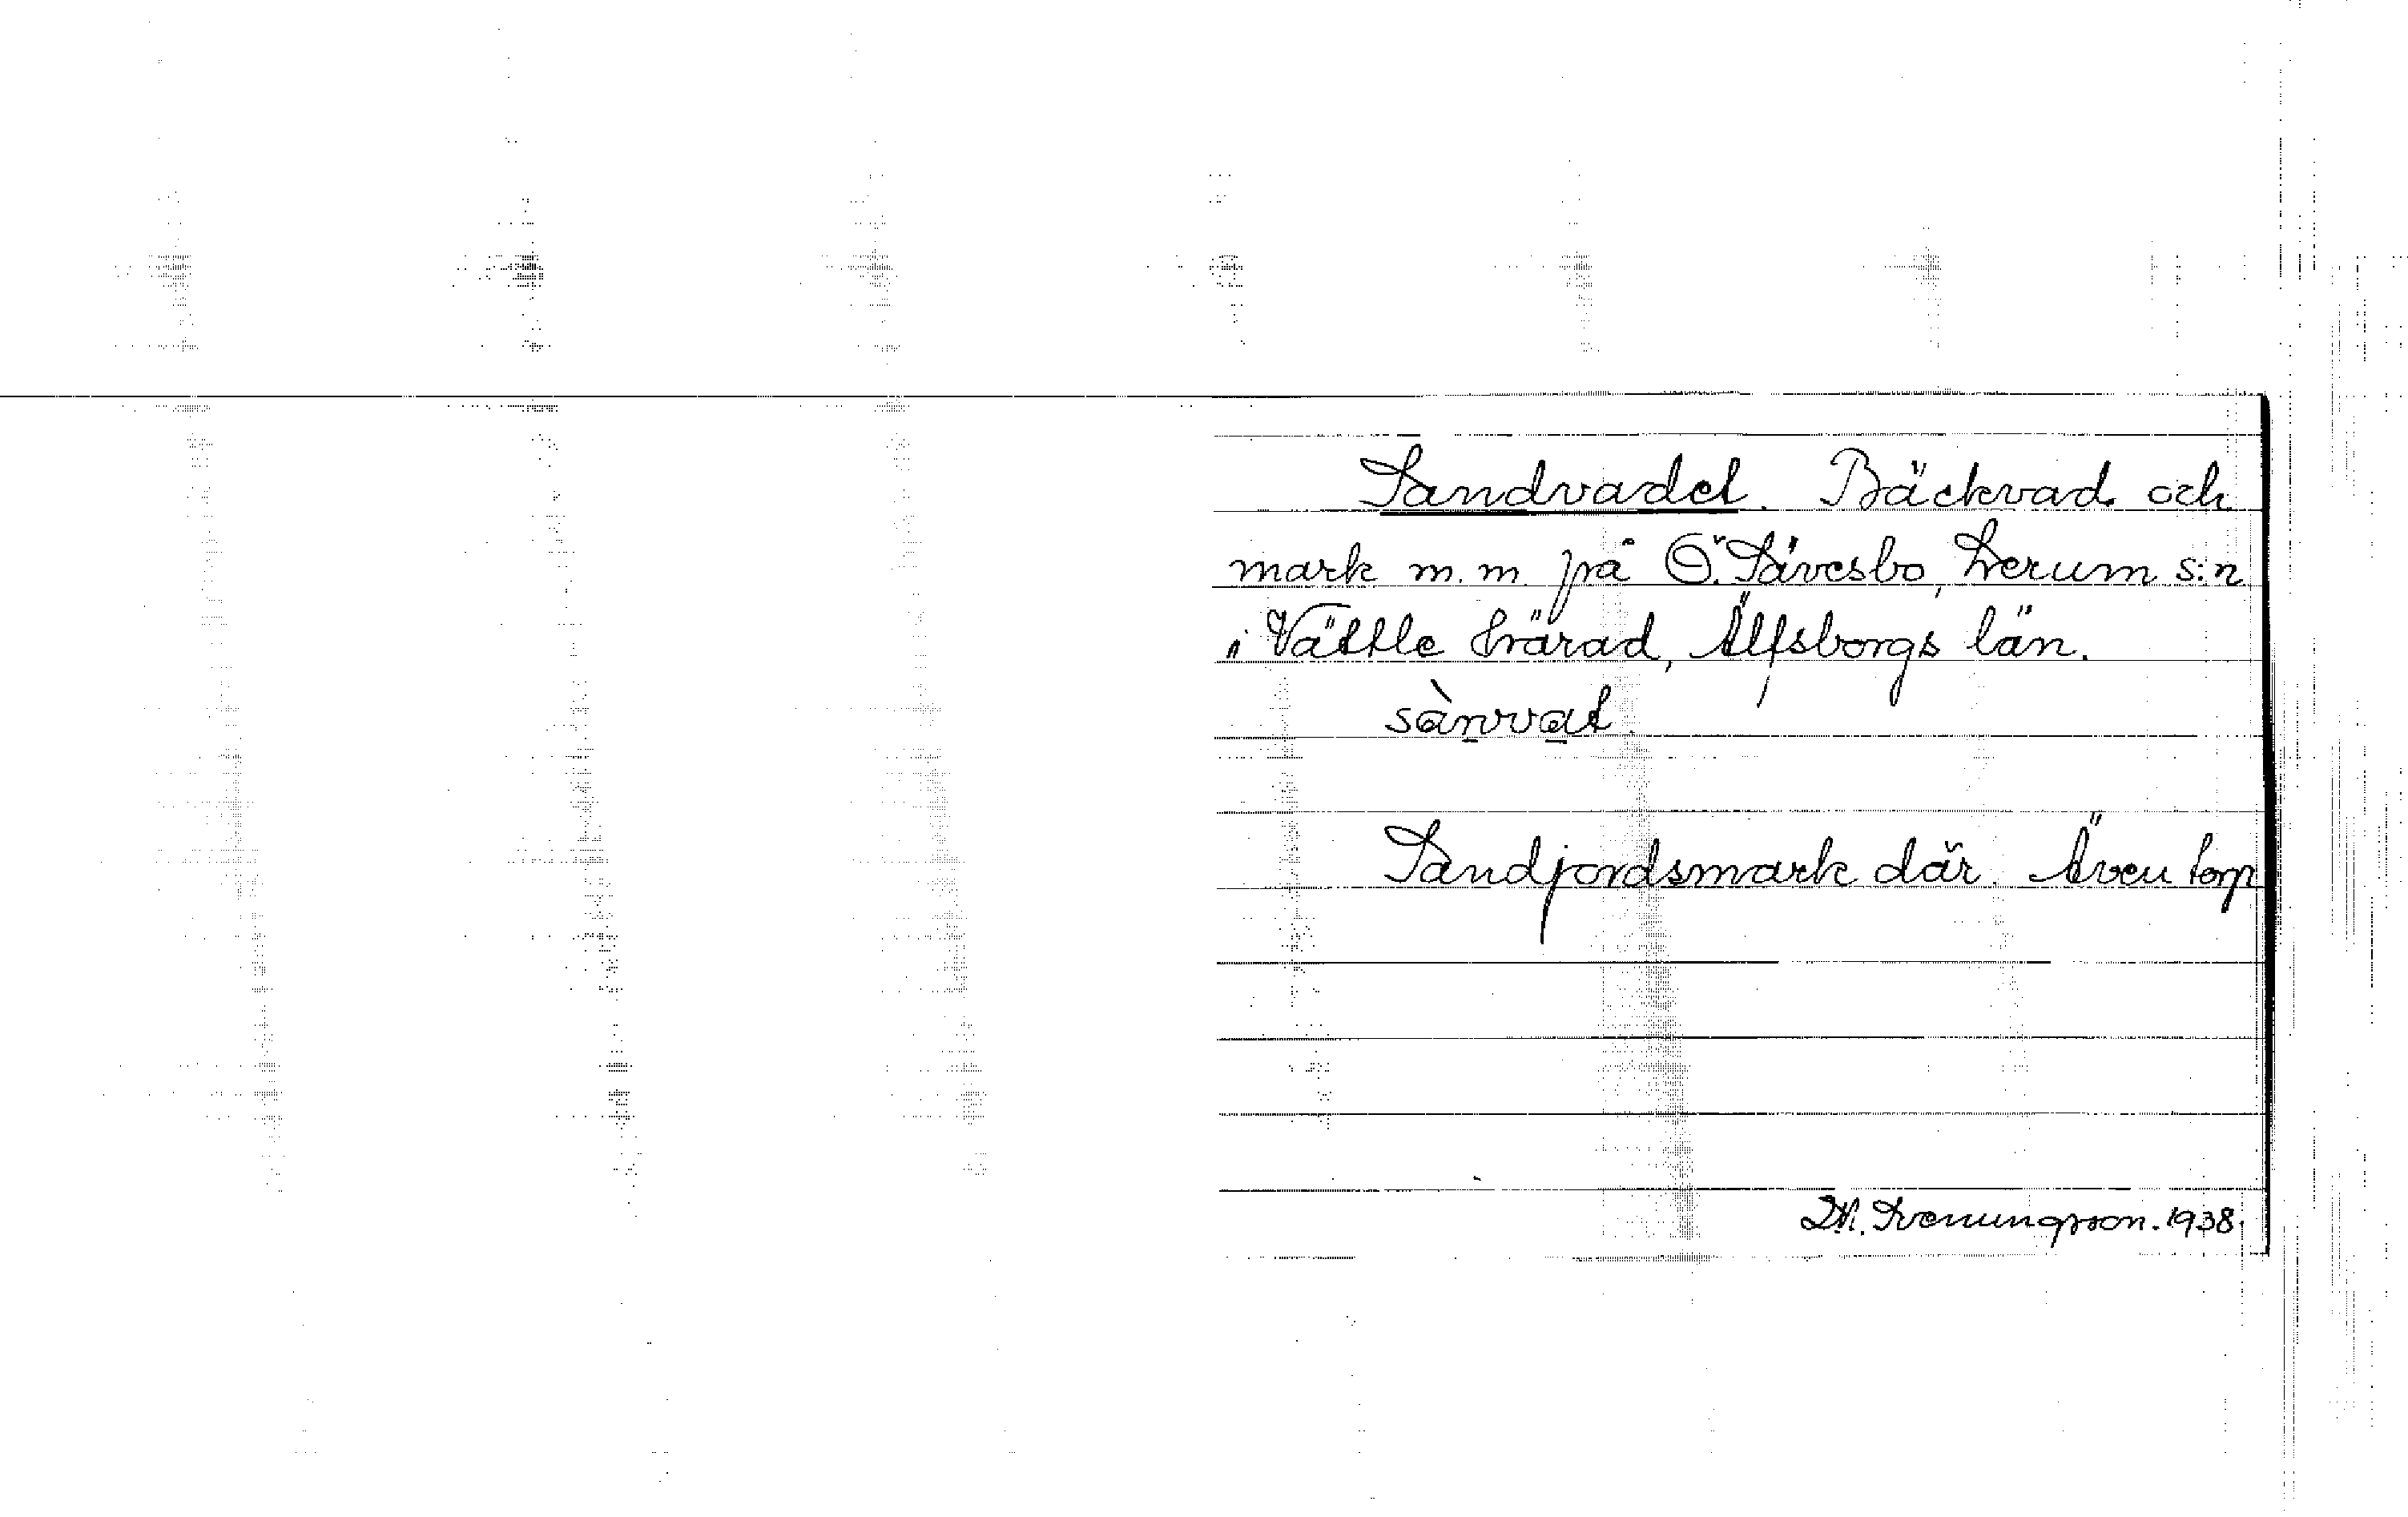 Sandvadet. Bäckvad och
mark m.m. på Ö. Sävesbo, Lerum s:n
i Vättle härad, Älfsborgs län.
sànvat.
Sandjordsmark där. Även torp
M. Svenungsson. 1938.